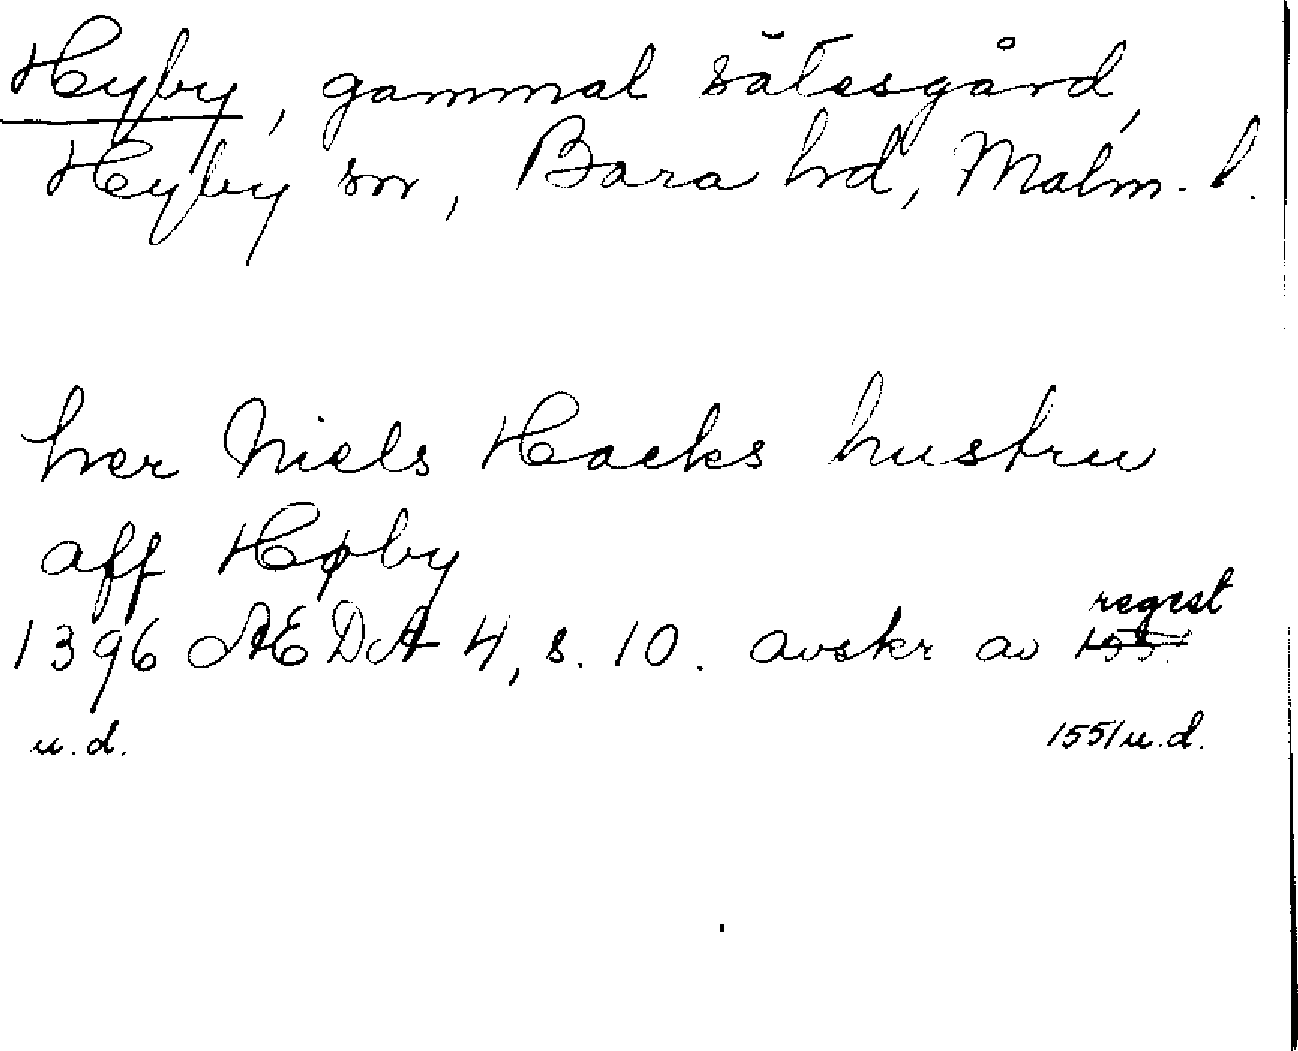 Hyby, gammal sätesgård,
Hyby sn, Bara hd, Malm. l.
her Niels Hacks hustru
aff Høby
regest
1396 ÆDA 4, s. 10. avskr av 155.
u.d. 1551 u.d.